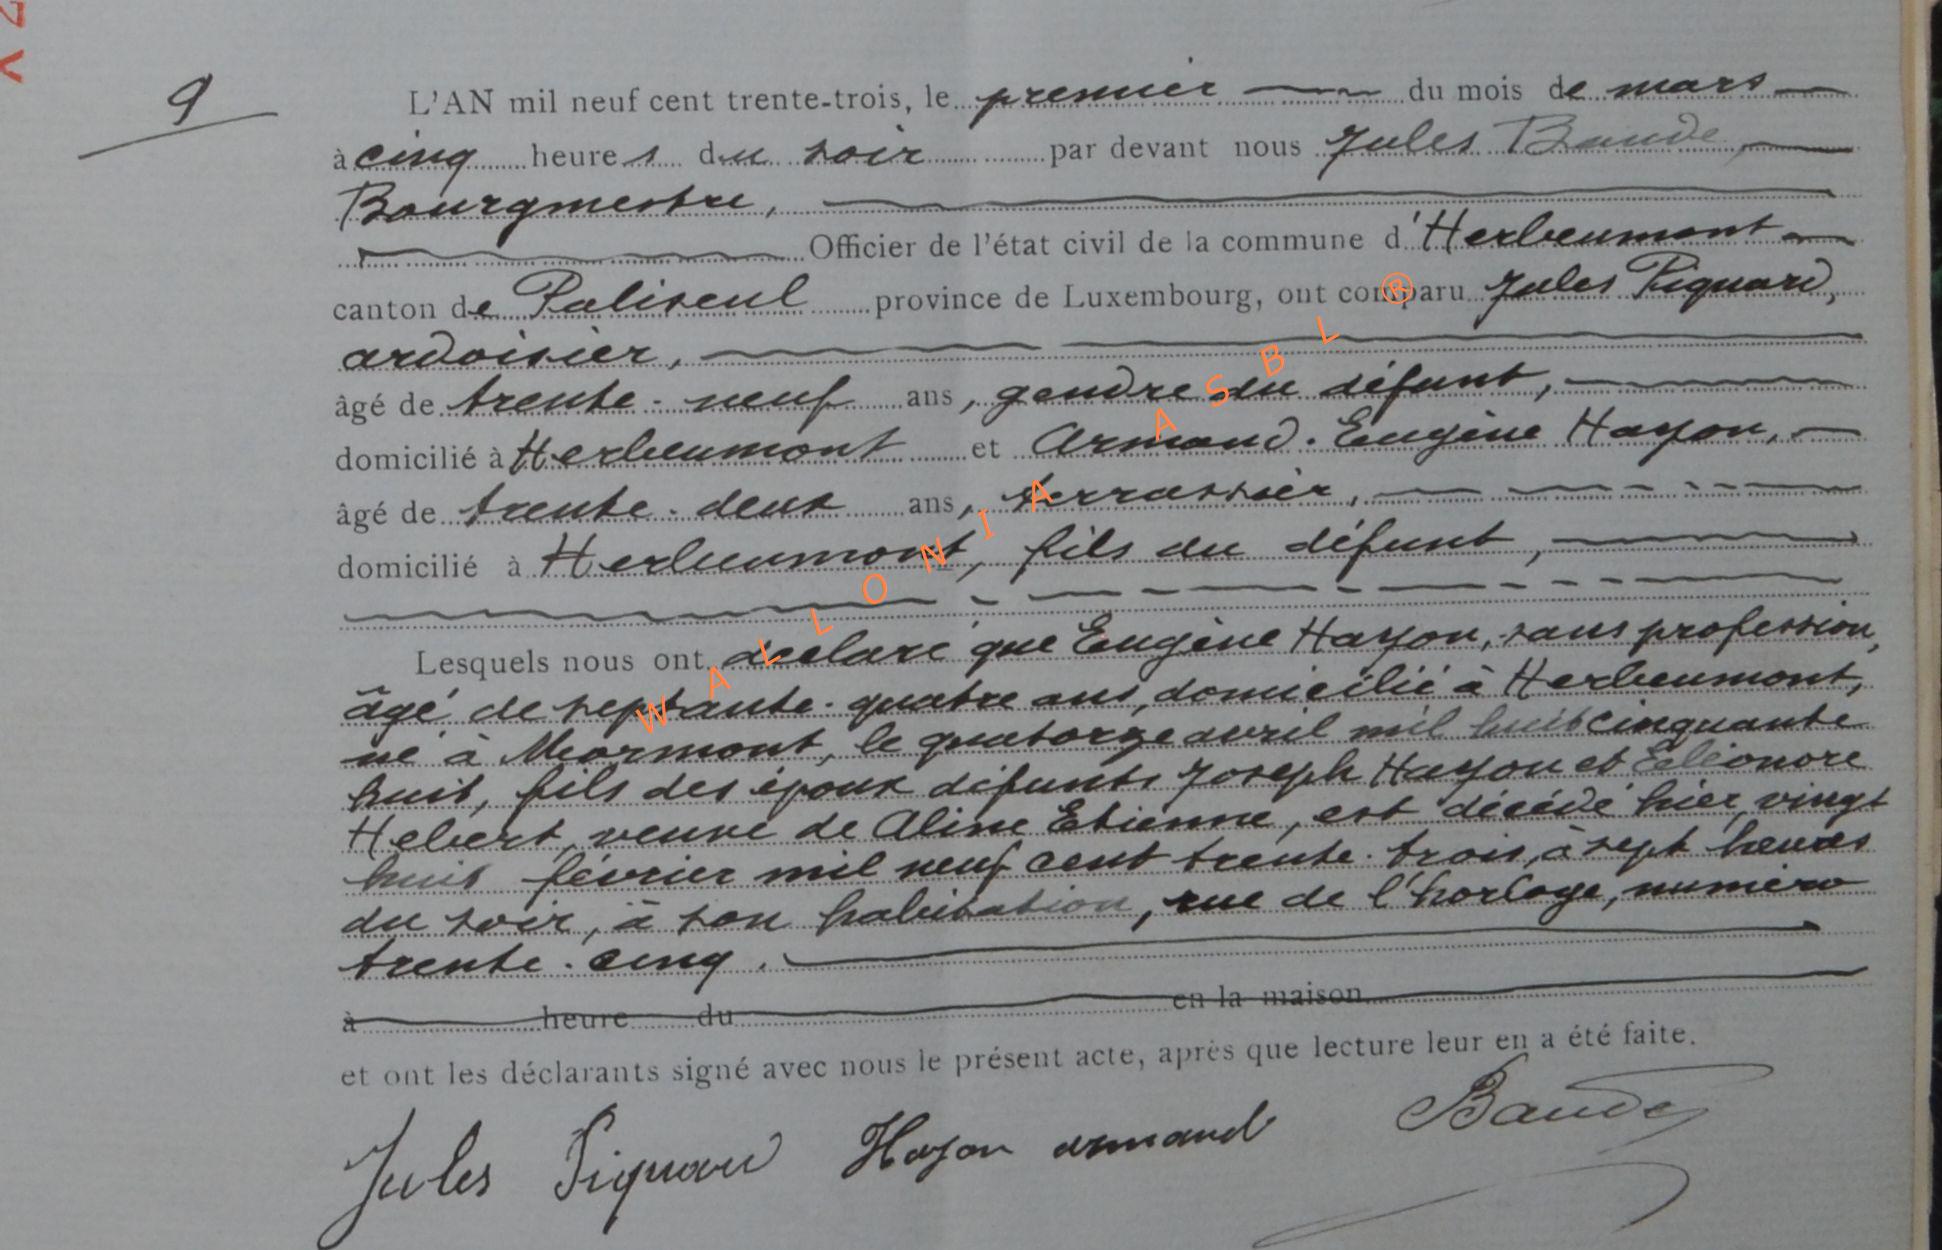 9
L'AN mil neuf cent trente-trois, le premier du mois de mars
à cinq heures du soir par devant nous Jules Baude,
Bourgmestre,
Officier de l'état civil de la commune d'Herbeumont
canton de Paliseul province de Luxembourg, ont comparu Jules Piquard,
ardoisier,
âgé de trente-neuf ans, gendre du défunt,
domicilié à Herbeumont et Armand-Eugène Hayon,
âgé de trente-deux ans, terrassier,
domicilié à Herbeumont, fils du défunt,
Lesquels nous ont déclaré que Eugène Hayon, sans profession,
âgé de septante-quatre ans, domicilié à Herbeumont,
né à Mormont, le quatorze avril mil huit cinquante
huit, fils des époux défunts Joseph Hayon et Eléonore
Hebert, veuve de Aline Etienne, est décédé hier, vingt
huit février mil neuf cent trente-trois, à sept heures
du soir, à son habitation, rue de l'horloge, numéro
trente-cinq.
à heure du en la maison
et ont les déclarants signé avec nous le présent acte, après que lecture leur en a été faite.
Jules Piquard Hayon armand Baude
WALLONIA ASBL ®